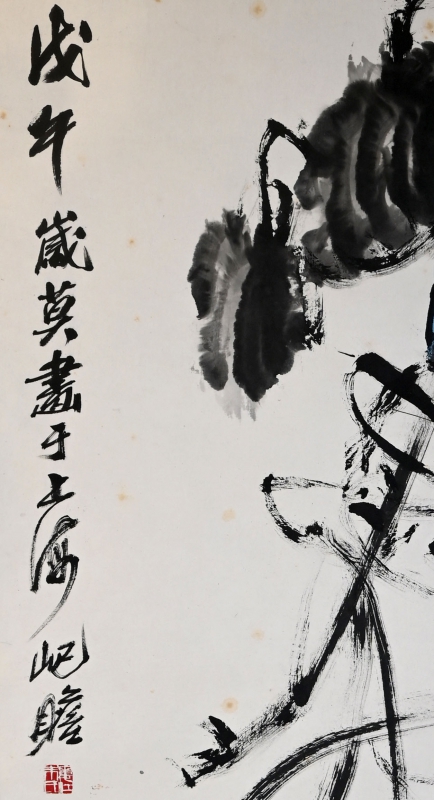 戊午歲莫畫于上海屺瞻